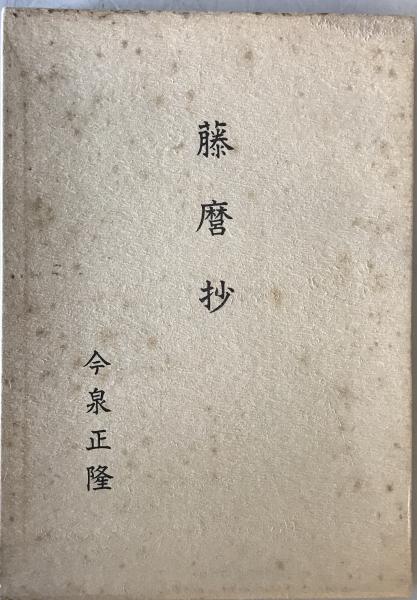 藤麿抄
今泉正隆